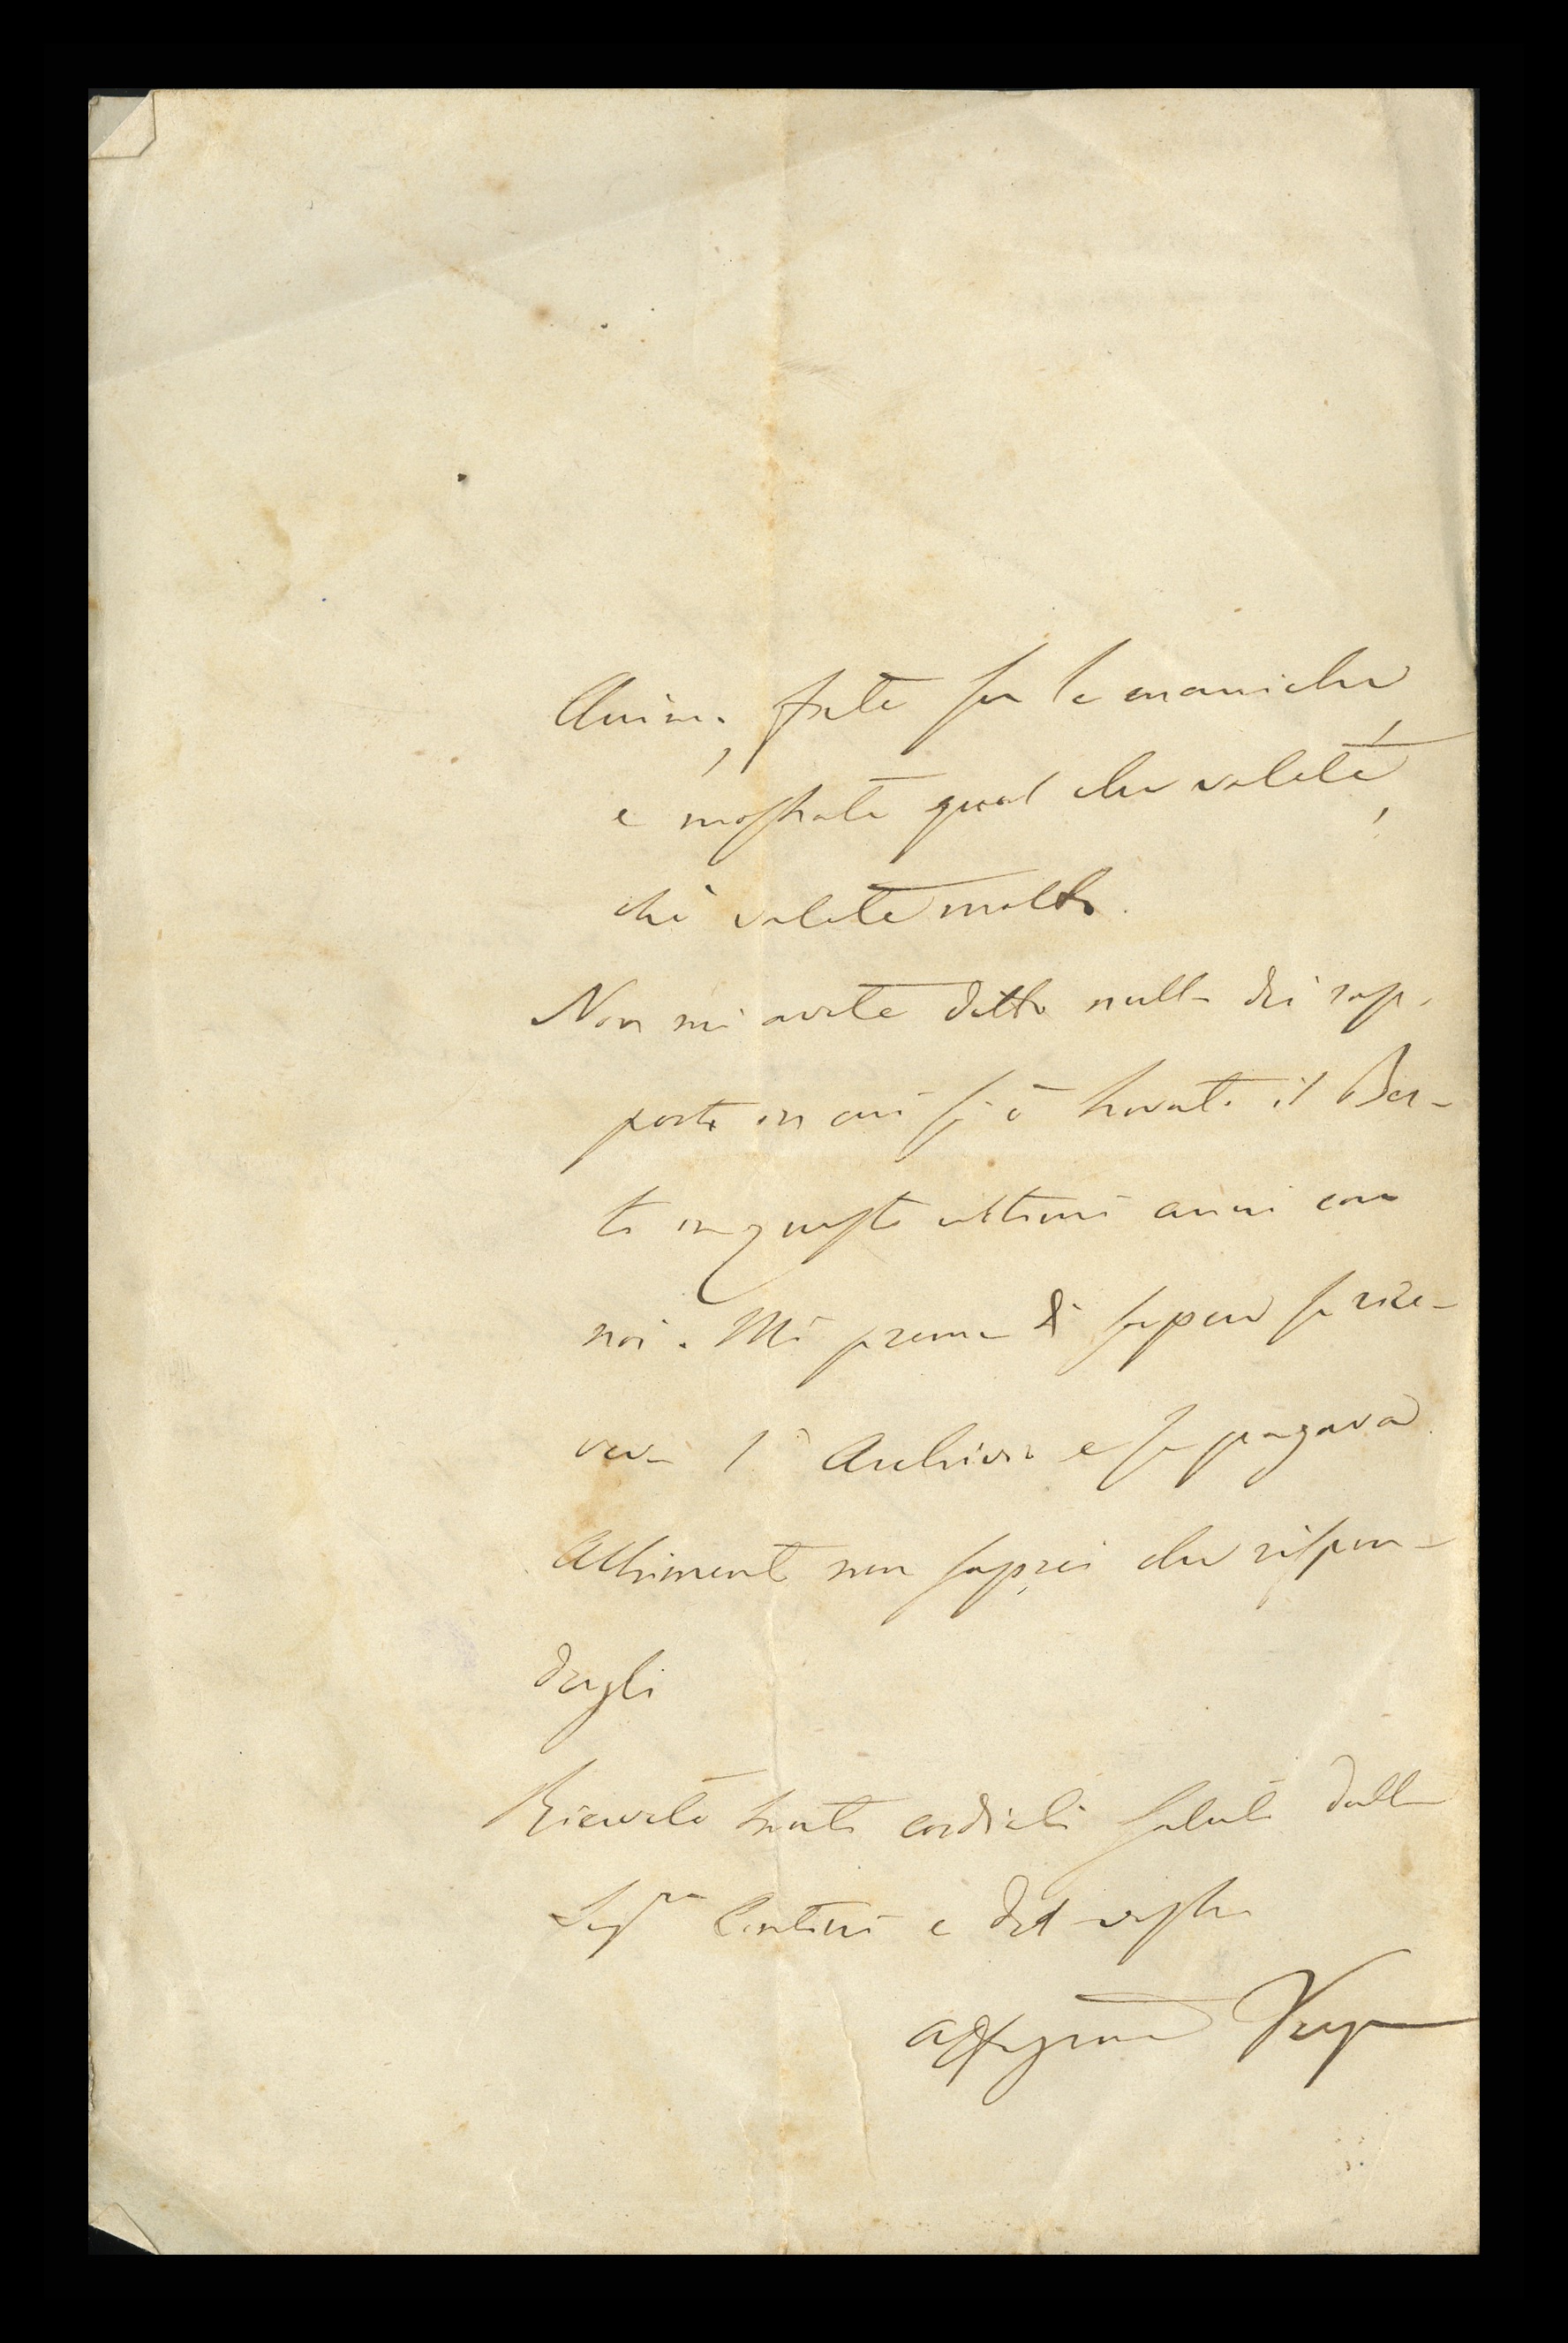 Animo, fate su le maniche,
e mostrate quel che valete,
ché valete molto.
Non mi avete detto nulla dei rap-
porti in cui si è trovato il Ber-
ti in questi ultimi anni con
noi. Mi preme di sapere se rice-
veva l'Archivio e se pagava.
Altrimenti non saprei che rispon-
dergli
Ricevete tanti cordiali saluti dalla
Sig.ra e del vostro